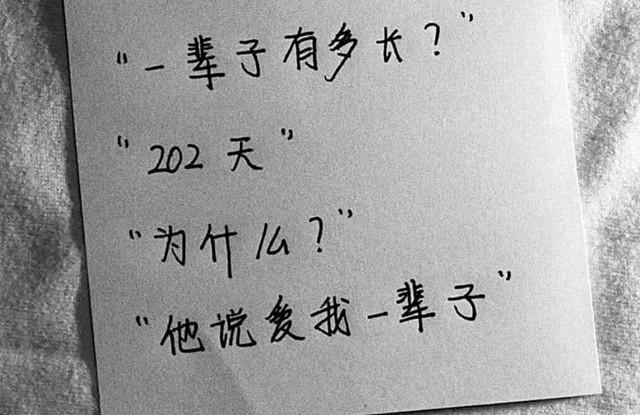 “一辈子有多长？”
“202天”
“为什么？”
“他说爱我一辈子”